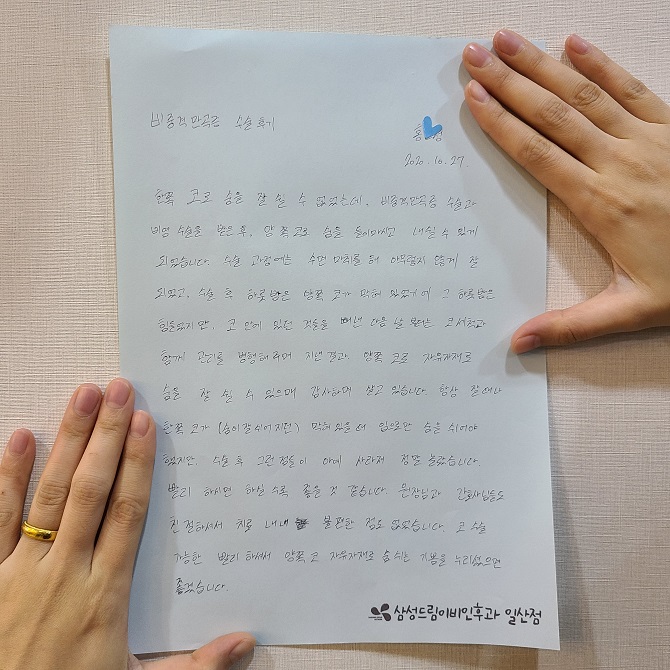 비중격만곡증 수술후기
홍 성
2020.10.27.
한쪽 코로 숨을 잘 쉴 수 없었는데, 비중격만곡증 수술과
비염 수술을 받은 후, 양쪽 코로 숨을 들이마시고 내쉴 수 있게
되었습니다. 수술 과정에는 수면 마취를 해 아무렇지 않게 잘
되었고, 수술 후 하룻밤은 양쪽 코가 막혀 있었기에 그 하룻밤은
힘들었지만, 코 안에 있던 것들을 빼낸 다음 날 부터는 코세척과
함께 관리를 병행해주며 지낸 결과, 양쪽 코로 자유자재로
숨을 잘 쉴 수 있으며 감사하며 살고 있습니다. 항상 잘 때나
한쪽 코가 (숨이 잘 쉬어지던) 막혀있을 때 입으로만 숨을 쉬어야
했지만, 수술 후 그런 점들이 아예 사라져 정말 놀랐습니다.
빨리 하시면 하실 수록 좋을 것 같습니다. 원장님과 간호사님들도
친절하셔서 치료 내내 불편한 점도 없었습니다. 코 수술
가능한 빨리 하셔서 양쪽 코 자유자재로 숨 쉬는 기쁨을 누리셨으면
좋겠습니다.
삼성드림이비인후과 일산점